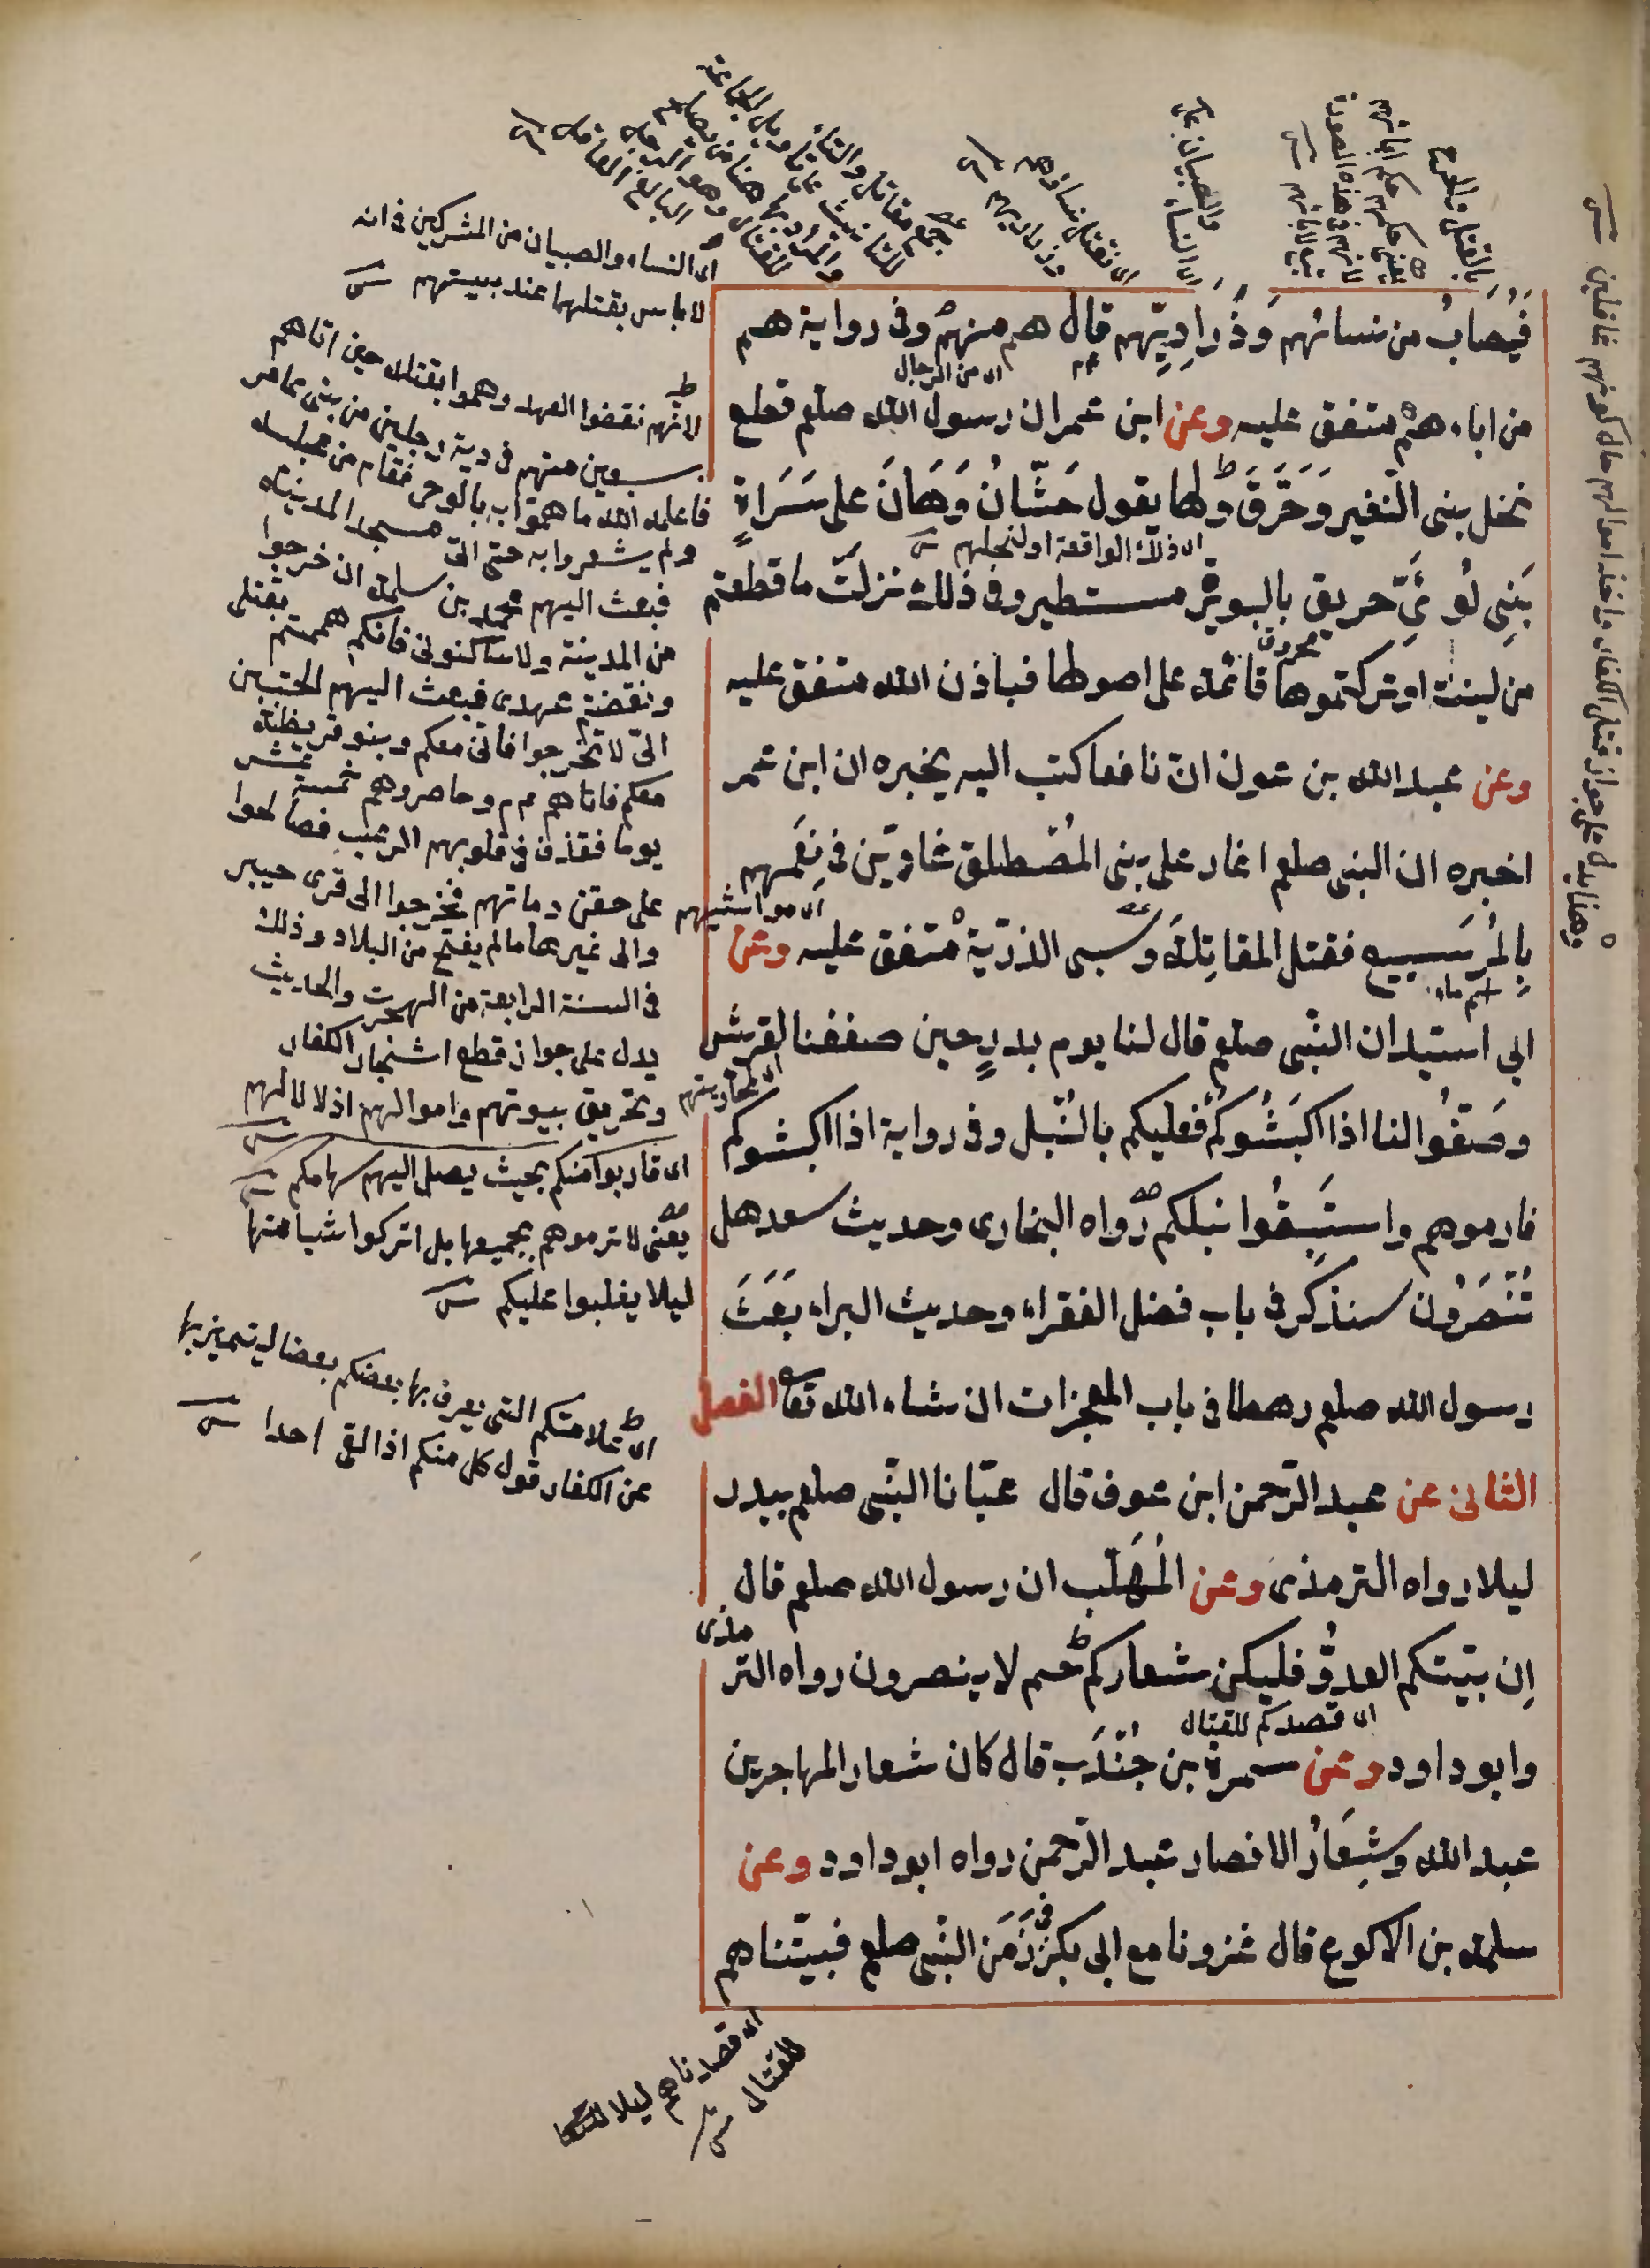 فَيُصَابُ من نسائهم وَذَرَارِيِّهم قال هم منهم وفى رواية هم
اى من الرجال
من اباءهم متفق عليه وعن ابن عمر ان رسول الله صلعم قطع
نخل بنى النضير وَحَرَّقَ ولها يقول حَسَّانُ وَهَانَ على سَرَاةِ
اى ذلك الواقعة
بَنِى لُؤَىٍّ حريق بالبويرة مستطير وفى ذلك نزلت ما قطعتم
من لينة او تركتموها قائمة على اصولها فباذن الله متفق عليه
وعن عبد الله بن عون ان نافعا كتب اليه يخبره ان ابن عمر
اخبره ان النبى صلعم اغار على بنى المُصْطلق غارّين فى نَعَمهم
اى مواشيهم
بِالمُرَيسيع فقتل المقاتِلَة وسبى الذرّية متفق عليه وعن
اسم ماء
ابي اسيد ان النّبى صلعم قال لنا يوم بدرٍ حين صففنا لقريش
اى لمحاربتهم
وصَفّوا لنا اذا اكثبُوكُمْ فعليكم بالنَّبل وفى رواية اذا اكثبوكم
فارموهم واستَبقُوا نبلكم رواه البخارى وحديث سعد هل
تُنْصَرُون سنذكر فى باب فضل الفقراء وحديث البراء بَعَثَ
رسول الله صلعم رهطا فى باب المعجزات ان شاء الله تعا الفصل
الثانى عن عبد الرّحمن ابن عوف قال عبّانا النّبى صلعم ببدر
ليلا رواه الترمذى وعن المُهَلّب ان رسول الله صلعم قال
اِن بيّتكم العدوُّ فليكن شعاركم حم لا ينصرون رواه التر
مذى
اى قصدكم للقتال
وابوداود وعن سمرة بن جُنْدَب قال كان شعار المهاجرين
عبد الله وشِعَارُ الانصار عبد الرّحمن رواه ابوداود وعن
سلمة بن الاكوع قال غزونا مع ابي بكر زَمَنَ النّبى صلعم فبيّتناهم
اى النساء والصبيان من المشركين فى انه
لا باس بقتلهما عند تبييتهم
لانهم نقضوا العهد وهموا بقتله حين اتاهم
فى دية رجلين من بنى عامر
فاعلمه الله ما هموا به بالوحى فقام من مجلسه
ولم يشعروا به حتى اتى مسجد المدينة
فبعث اليهم محمد بن سلمة ان خرجوا
من المدينة ولا تساكنونى فانكم هممتم بقتلى
ونقضتم عهدى فبعث اليهم
الىّ لا تخرجوا فانى معكم وبنو قريظة
معكم فاتاهم م م وحاصروهم خمسة عشر
يوما فقذف فى قلوبهم الرعب فصالحوا
على حقن دمائهم فخرجوا الى قرى خيبر
والى غيرها مالم يفتح من البلاد وذلك
فى السنة الرابعة من الهجرت والحديث
يدل على جواز قطع اشجار الكفار
وتحريق بيوتهم واموالهم اذلالا لهم
اى قاربوا منكم بحيث يصل اليهم سهامكم
يعنى لا ترموهم بجميعها بل اتركوا شيا منها
ليلا يغلبوا عليكم
اى علامتكم التى يعرف بها بعضكم بعضا ليتميز بها
عن الكفار قول كل منكم اذا لقى احدا
اى قصدناهم ليلا
للقتال